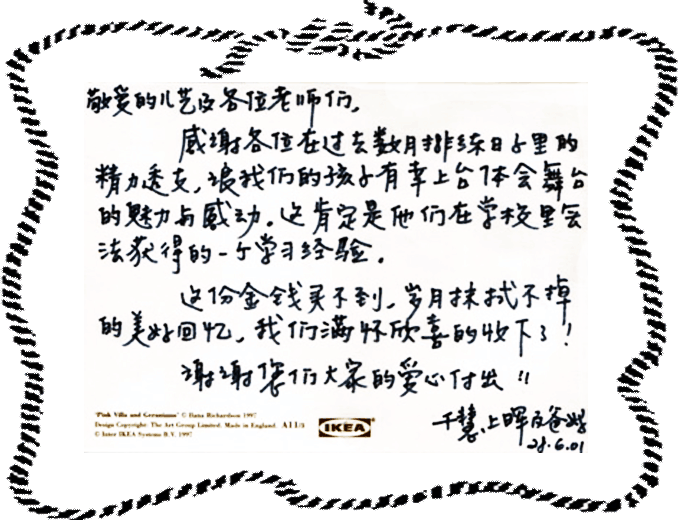 敬爱的儿艺及各位老师们,
感谢各位在过去数月排练日子里的
精力透支,让我们的孩子有幸上台体会舞台
的魅力与感动。这肯定是他们在学校里无
法获得的一个学习经验。
这份金钱买不到,岁月抹拭不掉
的美好回忆,我们满怀欣喜的收下了!
谢谢您们大家的爱心付出!!
千慧、上晖及爸妈
28.6.01
"Pink Villa and Geraniums" © Ilana Richardson 1997
Design Copyright: The Art Group Limited. Made in England. A11/5
© Inter IKEA Systems B.V. 1997
IKEA®